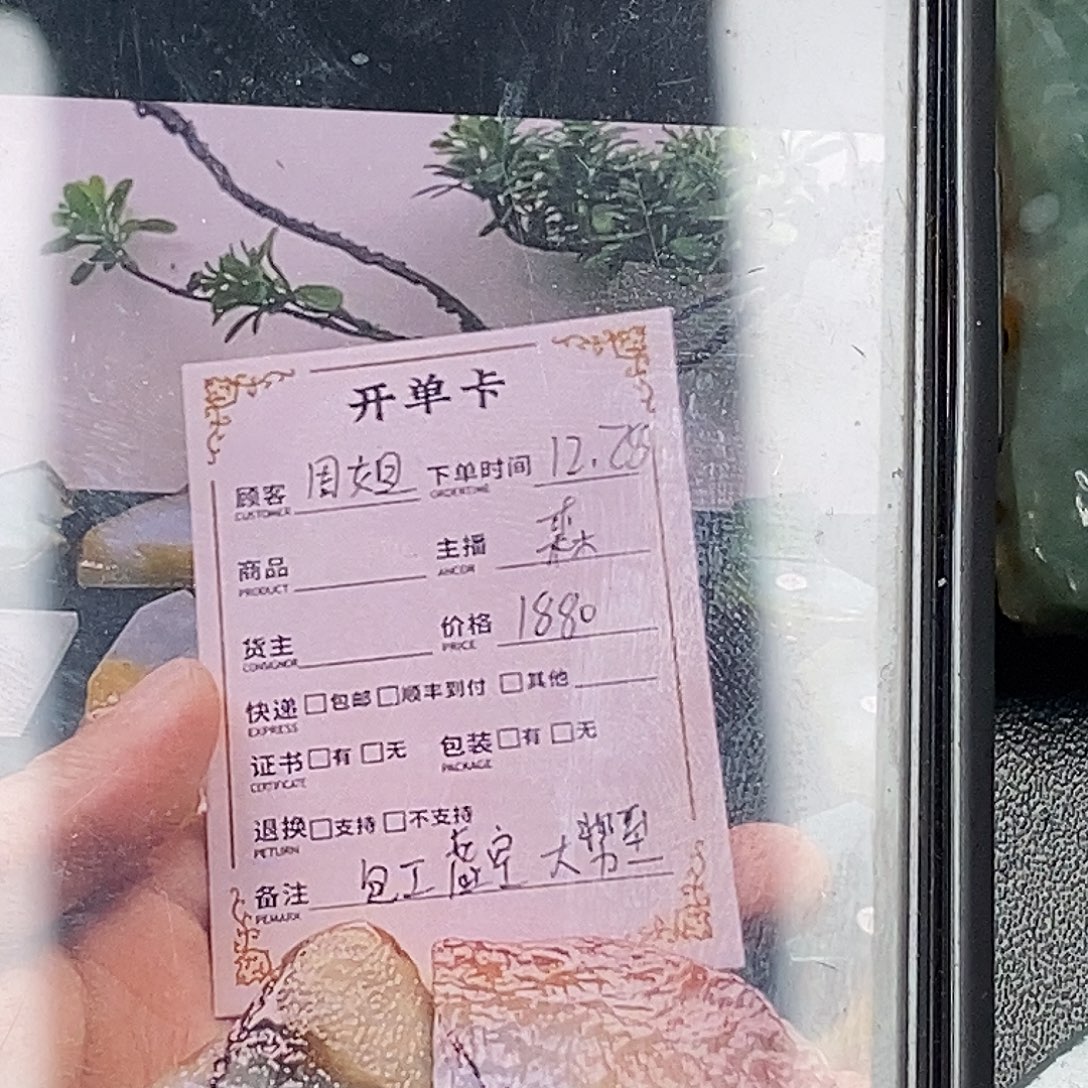 开单卡
顾客 周姐 下单时间 12.28
CUSTOMER ORDERTIME
商品 主播
PRODUCT ANCOR
货主 价格 1880
CONSIGNOR PRICE
快递 □包邮 □顺丰到付 □其他
EXPRESS
证书 □有 □无 包装 □有 □无
CERTIFICATE PACKAGE
退换 □支持 □不支持
RETURN
备注 包工 大
REMARK